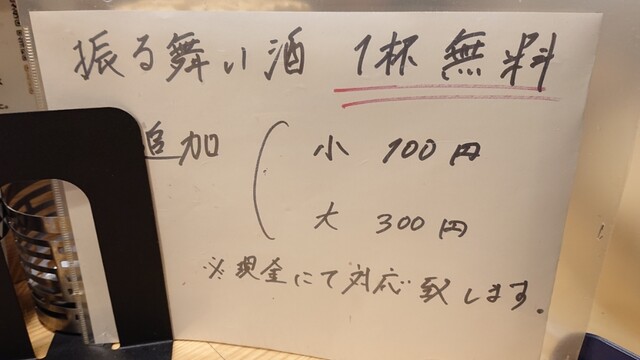 振る舞い酒 1杯 無料
追加 ( 小 100円
大 300円
※現金にて対応致します。